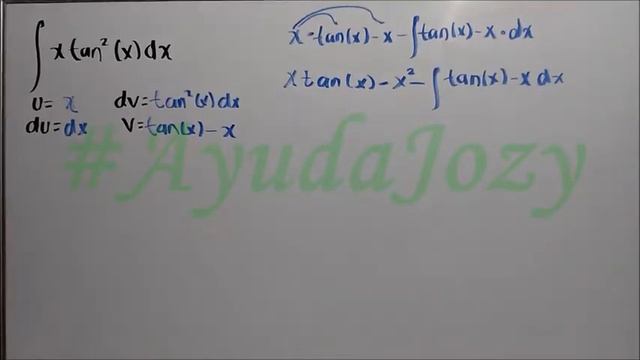 ∫ x tan²(x) dx
u = x dv = tan²(x) dx
du = dx v = tan(x) - x
x · tan(x) - x - ∫ tan(x) - x · dx
x tan(x) - x² - ∫ tan(x) - x dx
#AyudaJozy